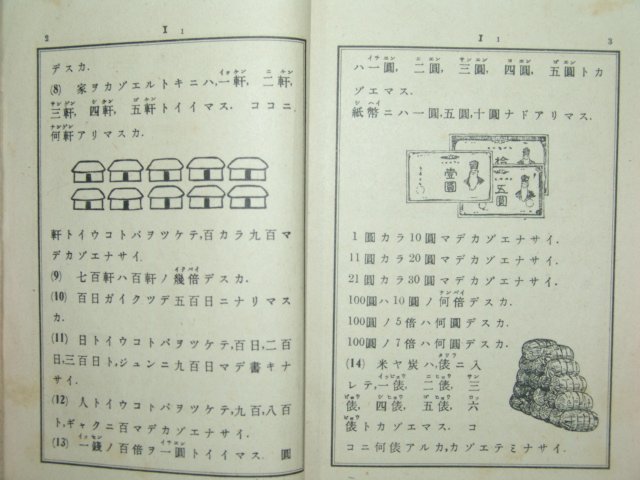 2
I 1
デスカ.
(8) 家ヲカゾエルトキニハ,一軒, 二軒,
三軒, 四軒, 五軒トイイマス. ココニ
何軒アリマスカ.
軒トイウコトバヲツケテ,百カラ九百マ
デカゾエナサイ.
(9) 七百軒ハ百軒ノ幾倍デスカ.
(10) 百日ガイクツデ五百日ニナリマス
カ.
(11) 日トイウコトバヲツケテ,百日,二百
日,三百日ト,ジュンニ九百日マデ書キナ
サイ.
(12) 人トイウコトバヲツケテ,九百,八百
ト,ギャクニ百マデカゾエナサイ.
(13) 一錢ノ百倍ヲ一圓トイイマス. 圓
I 1
3
ハ一圓, 二圓, 三圓, 四圓, 五圓トカ
ゾエマス.
紙幣ニハ一圓,五圓,十圓ナドアリマス.
壹圓
拾
五圓
1圓カラ10圓マデカゾエナサイ.
11圓カラ20圓マデカゾエナサイ.
21圓カラ30圓マデカゾエナサイ.
100圓ハ10圓ノ何倍デスカ.
100圓ノ5倍ハ何圓デスカ.
100圓ノ7倍ハ何圓デスカ.
(14) 米ヤ炭ハ,俵ニ入
レテ,一俵, 二俵, 三
俵, 四俵, 五俵, 六
俵トカゾエマス. コ
コニ何俵アルカ,カゾエテミナサイ.